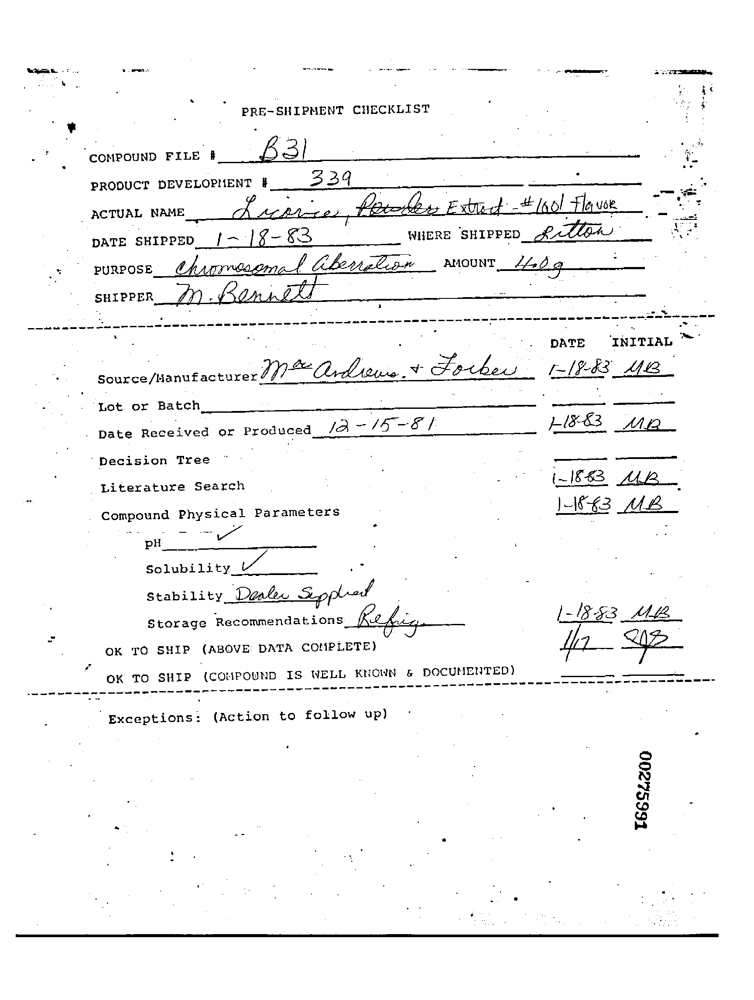 PRE-SHIPMENT CHECKLIST
COMPOUND FILE # B31
PRODUCT DEVELOPMENT # 339
ACTUAL NAME Licorice, Powder Extract #1601 Flavor
DATE SHIPPED 1-18-83 WHERE SHIPPED Litton
PURPOSE Chromosomal Aberration AMOUNT 4.0g
SHIPPER M. Bennett
DATE INITIAL
Source/Manufacturer Mac Andrews & Forbes 1-18-83 MB
Lot or Batch
Date Received or Produced 12-15-81 1-18-83 MB
Decision Tree
Literature Search 1-18-83 MB
Compound Physical Parameters 1-18-83 MB
pH ✓
Solubility ✓
Stability Dealer Supplied
Storage Recommendations Refrig. 1-18-83 MB
OK TO SHIP (ABOVE DATA COMPLETE) 1/17
OK TO SHIP (COMPOUND IS WELL KNOWN & DOCUMENTED)
Exceptions: (Action to follow up)
00275991